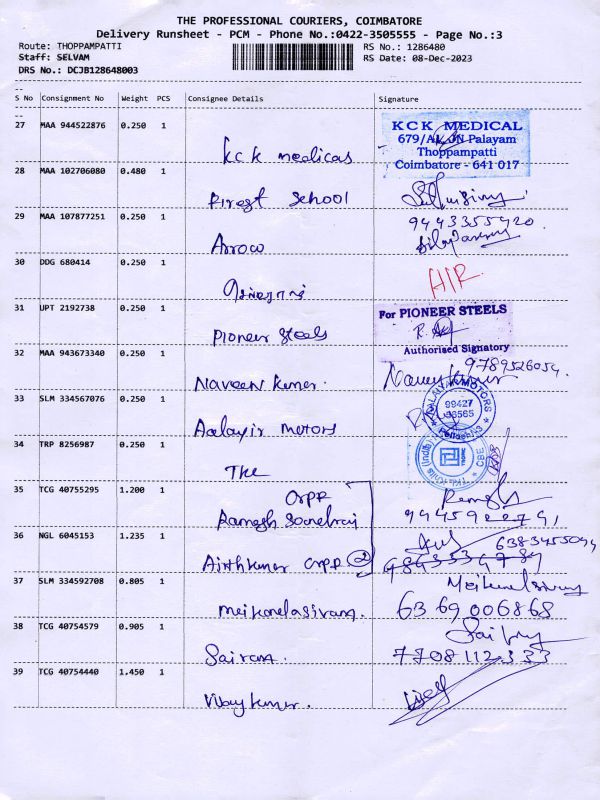 THE PROFESSIONAL COURIERS, COIMBATORE
Delivery Runsheet - PCM - Phone No.:0422-3505555 - Page No.:3
Route: THOPPAMPATTI RS No.: 1286480
Staff: SELVAM RS Date: 08-Dec-2023
DRS No.: DCJB128648003
S No Consignment No Weight PCS Consignee Details Signature
27 MAA 944522876 0.250 1
K.C.K medicas
KCK MEDICAL
679/A Palayam
Thoppampatti
Coimbatore - 641 017
28 MAA 102706080 0.480 1
School
29 MAA 107877251 0.250 1
Arrow
9443355920
30 DDG 680414 0.250 1
H/R
31 UPT 2192738 0.250 1
Pioneer Steels
For PIONEER STEELS
Authorised Signatory
32 MAA 943673340 0.250 1
Naveen Kumar.
9789526054.
33 SLM 334567076 0.250 1
Aalayir motors
MOTORS
99427
34 TRP 8256987 0.250 1
The
CBE
35 TCG 40755295 1.200 1
Orpp
Ramesh
9445922791
36 NGL 6045153 1.235 1
Orpp 2
6383455094
37 SLM 334592708 0.805 1
6369006868
38 TCG 40754579 0.905 1
Sairam.
7708112333
39 TCG 40754440 1.450 1
Vijay Kumar.